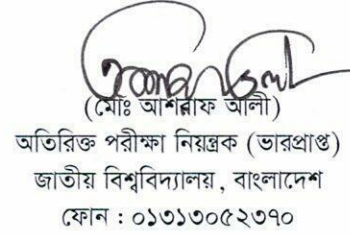 (মোঃ আশরাফ আলী)
অতিরিক্ত পরীক্ষা নিয়ন্ত্রক (ভারপ্রাপ্ত)
জাতীয় বিশ্ববিদ্যালয়, বাংলাদেশ
ফোন : ০১৩১৩০৫২৩৭০